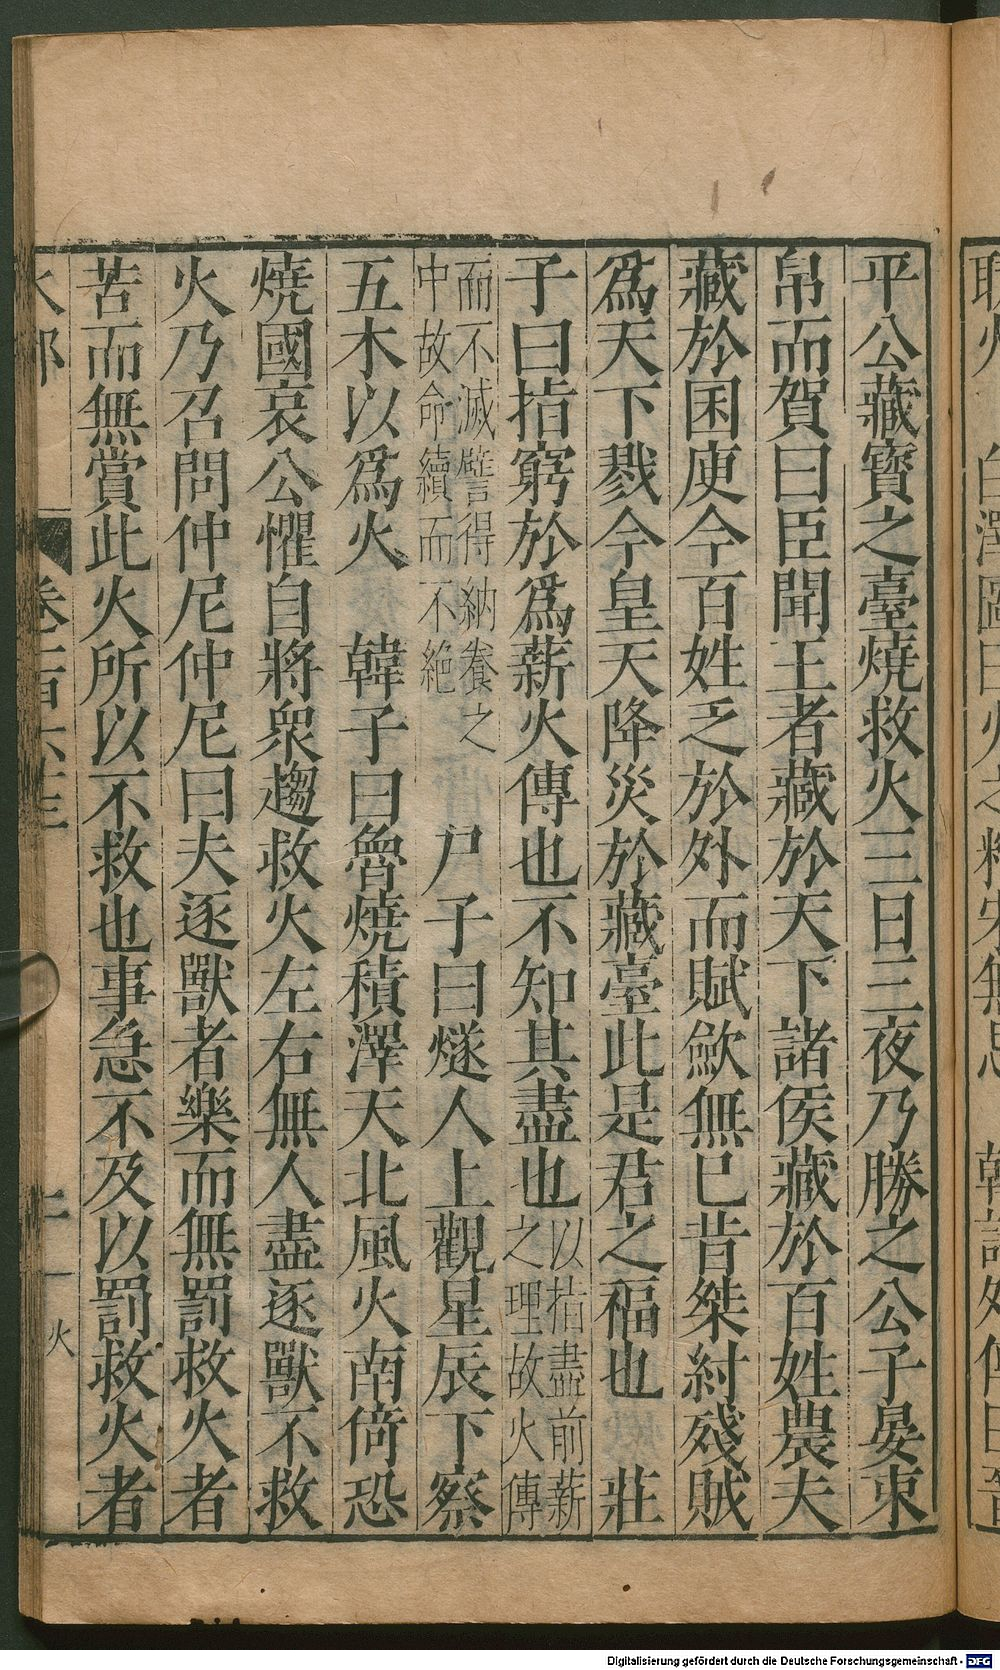 平公藏寶之臺燒救火三日三夜乃勝之公子晏束
帛而賀曰臣聞王者藏於天下諸侯藏於百姓農夫
藏於囷庾今百姓乏於外而賦歛無已昔桀紂殘賊
爲天下戮今皇天降災於藏臺此是君之福也 莊
子曰指窮於爲薪火傳也不知其盡也以指盡前薪之理故火傳
而不滅譬得納養之中故命續而不絕 尸子曰燧人上觀星辰下察
五木以爲火 韓子曰魯燒積澤天北風火南倚恐
燒國哀公懼自將衆趨救火左右無人盡逐獸不救
火乃召問仲尼仲尼曰夫逐獸者樂而無罰救火者
苦而無賞此火所以不救也事急不及以罰救火者
火部 卷二百六十三 二 火
Digitalisierung gefördert durch die Deutsche Forschungsgemeinschaft - DFG